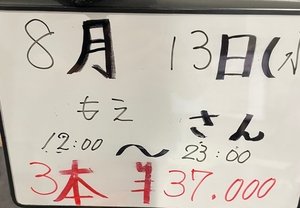 8月 13日(水
もえ さん
12:00 〜 23:00
3本 ¥37.000